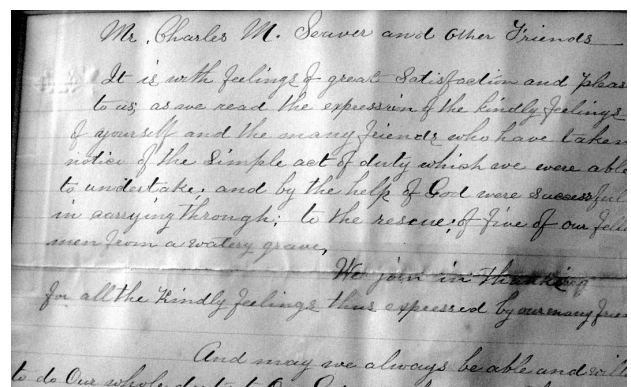 Mr. Charles M. Seaver and other Friends
It is with feelings of great satisfaction and pleas
to us, as we read the expression of the kindly feelings
of yourself and the many friends who have taken
notice of the simple act of duty which we were able
to undertake. and by the help of God were sucessful
in carrying through; to the rescue, of five of our fello
men from a watery grave,
We join in thanking
for all the kindly feelings thus expressed by our many frien
And may we always be able and will
to do Our whole duty to